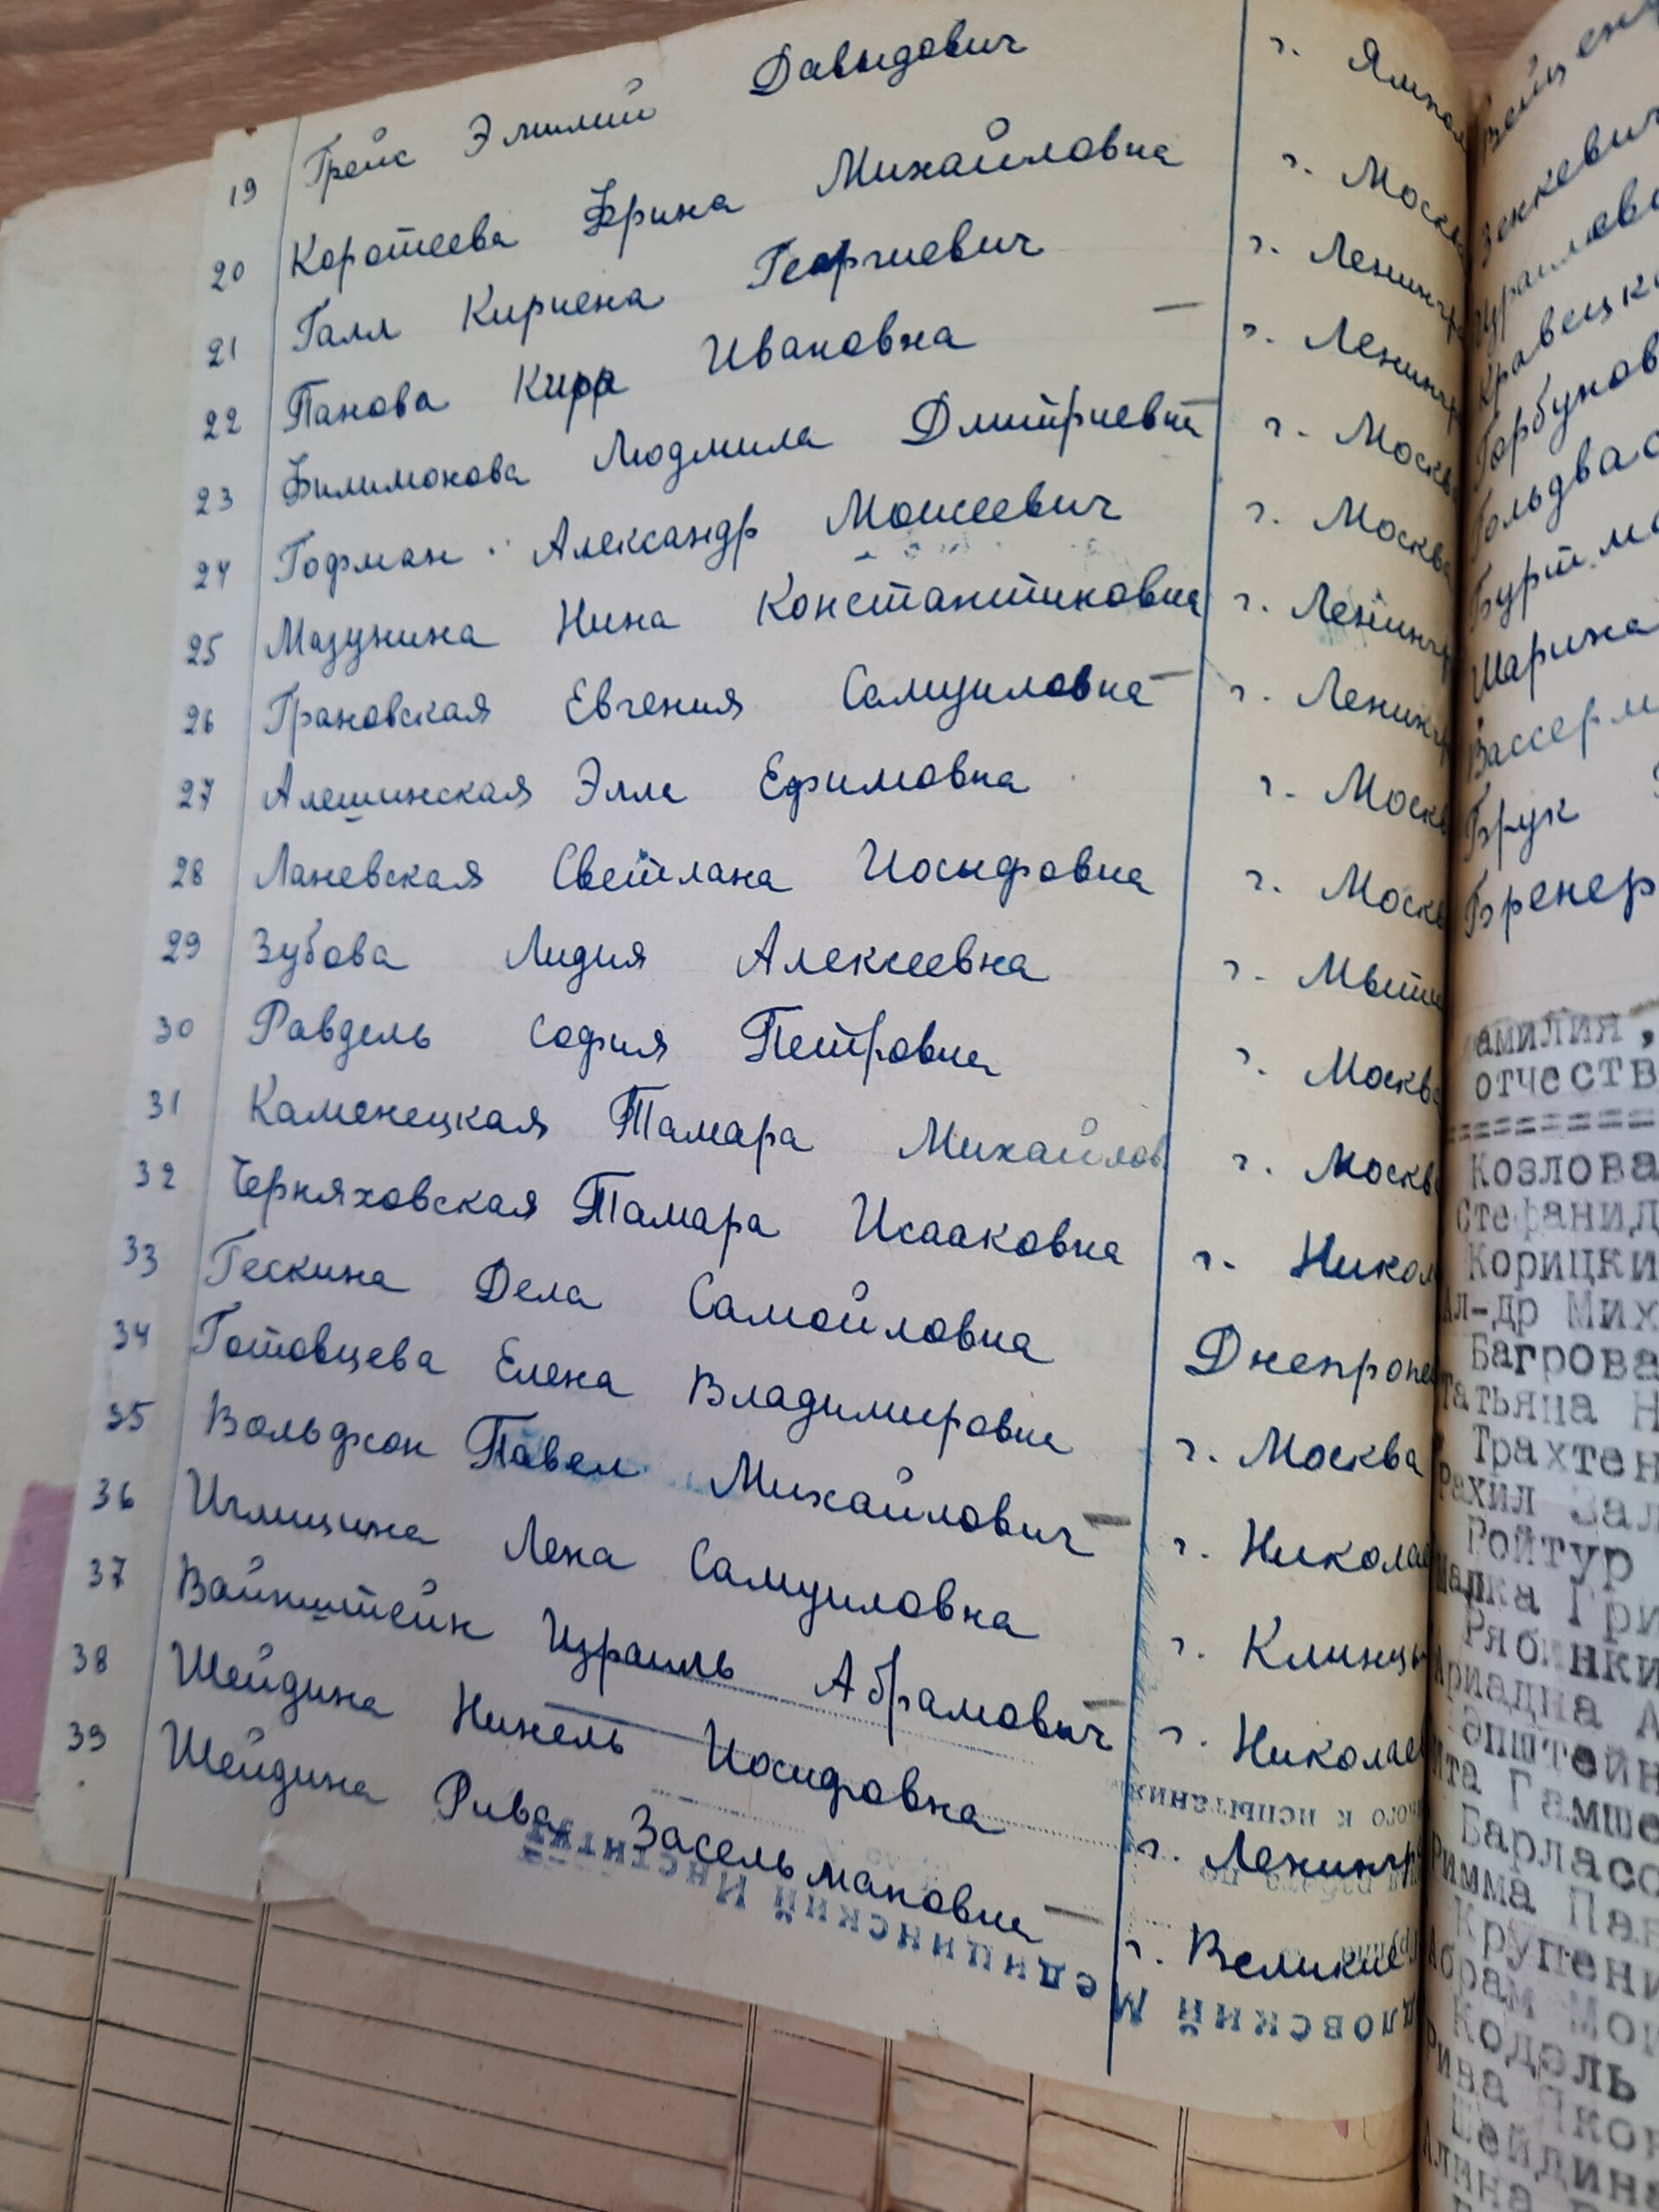 19 Грейс Эмилий Давыдович г. Ямпол
20 Коротеева Ирина Михайловна г. Москва
21 Галл Кириена Георгиевич г. Ленингр
22 Панова Кира Ивановна г. Ленингр
23 Филимонова Людмила Дмитриевна г. Москва
24 Гофман Александр Моисеевич г. Москва
25 Мазунина Нина Константиновна г. Ленингр
26 Грановская Евгения Самуиловна г. Ленингр
27 Алешинская Элла Ефимовна г. Москв
28 Ланевская Светлана Иосифовна г. Москв
29 Зубова Лидия Алексеевна г. Мыти
30 Равдель София Петровна г. Москва
31 Каменецкая Тамара Михайлов г. Москв
32 Черняховская Тамара Исааковна г. Никол
33 Гескина Дела Самойловна Днепропе
34 Готовцева Елена Владимировна г. Москва
35 Вольфсон Павел Михайлович г. Николае
36 Иглицина Лена Самуиловна г. Клинцы
37 Вайнштейн Израиль Абрамович г. Николаев
38 Шейдина Нинель Иосифовна г. Ленингр
39 Шейдина Рива Засельмановна г. Великие
ного к испытания
дловский Медицинский Институт
Зенкевич
Израилева
Кравецк
Горбунов
Гольдвас
Буртма
Шарина
Вассерм
Брук
Бренер
амилия,
отчеств
==========
Козлова
Стефанид
Корицки
Ал-др Мих
Багрова
Татьяна Н
Трахтен
Рахил Зал
Ройтур
Малка Гри
Рябинки
Ариадна А
Эпштейн
Ита Гамше
Барласо
Римма Пав
Крупени
Абрам Мои
Кодэль
Рива Яков
Шейдина
Алина